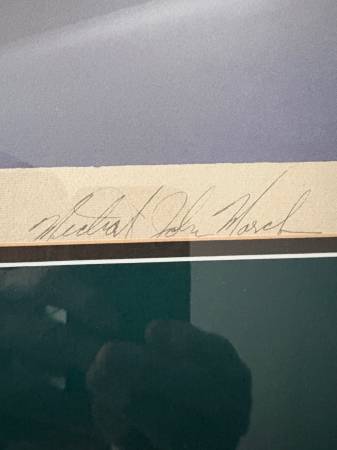 Michael John March